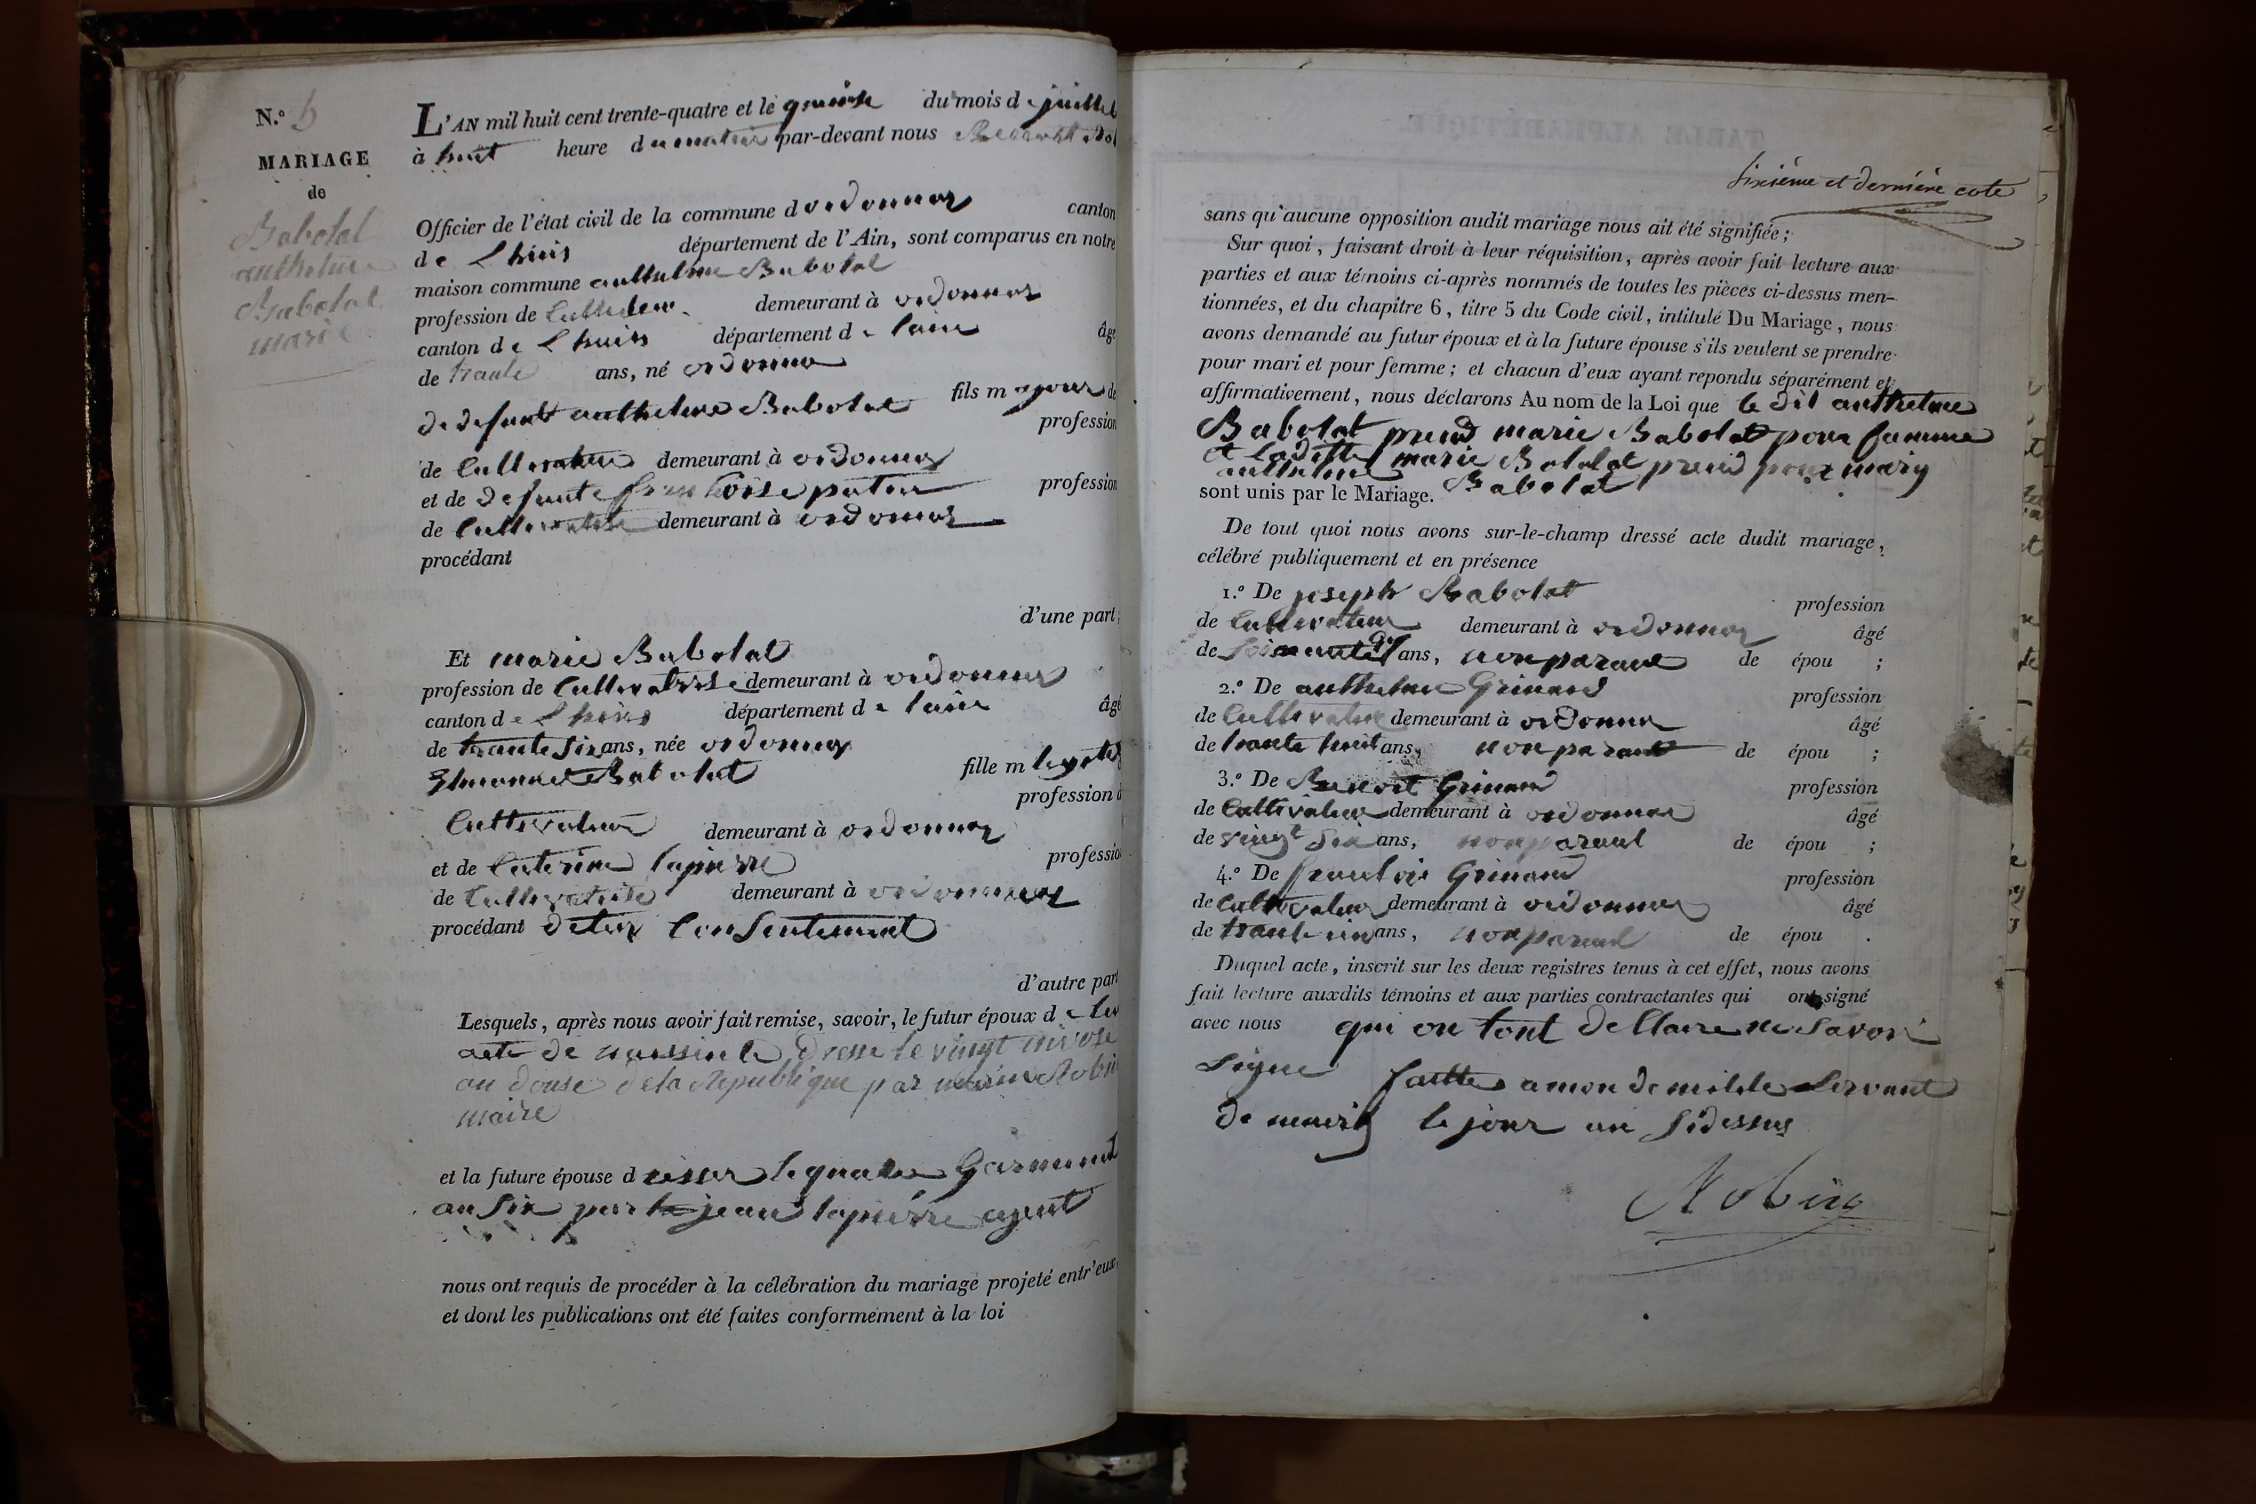 N.°
MARIAGE
de
Babolat
anthelme
Babolat
marie
L'AN mil huit cent trente-quatre et le quinse du mois de juillet
à huit heure du matin par-devant nous
Officier de l'état civil de la commune d ordonnas canton
de Lhuis département de l'Ain, sont comparus en notre
maison commune anthelme Babolat
profession de demeurant à ordonnas
canton de Lhuis département de lain âgé
de trante ans, né ordonna
fils majeur de
de defunt anthelme Babolat profession
de demeurant à ordonnas
et de defunte profession
de demeurant à ordonnas
procédant
d'une part;
Et marie Babolat
profession de cultivatrise demeurant à ordonnas
canton de Lhuis département de lain âgé
de trante six ans, née ordonnas
Babolat fille m
profession d
cultivateur demeurant à ordonnas
et de Caterine lapierre professio
de cultivatrise demeurant à ordonnas
procédant consentement
d'autre part
Lesquels, après nous avoir fait remise, savoir, le futur époux de
acte de dresse le vingt nivose
an douse de la Republique par Robin
maire
et la future épouse d
an six par jean lapierre agent
nous ont requis de procéder à la célébration du mariage projeté entr'eux
et dont les publications ont été faites conformément à la loi
sixième et dernière cote
sans qu'aucune opposition audit mariage nous ait été signifiée;
Sur quoi, faisant droit à leur réquisition, après avoir fait lecture aux
parties et aux témoins ci-après nommés de toutes les pièces ci-dessus men-
tionnées, et du chapitre 6, titre 5 du Code civil, intitulé Du Mariage, nous
avons demandé au futur époux et à la future épouse s'ils veulent se prendre
pour mari et pour femme; et chacun d'eux ayant repondu séparément et
affirmativement, nous déclarons Au nom de la Loi que le dit anthelme
Babolat prend marie Babolat pour famme
et laditte marie Babolat prend pour mary
anthelme Babolat
sont unis par le Mariage.
De tout quoi nous avons sur-le-champ dressé acte dudit mariage,
célébré publiquement et en présence
1.° De joseph Babolat profession
de cultivateur demeurant à ordonnas âgé
de ans, non parant de épou ;
2.° De anthelme Grinand profession
de cultivateur demeurant à ordonnas âgé
de trante huit ans, non parant de épou ;
3.° De Benoit Grinand profession
de cultivateur demeurant à ordonnas âgé
de vingt six ans, non parant de épou ;
4.° De francois Grinand profession
de cultivateur demeurant à ordonnas âgé
de trante ans, non parant de épou .
Duquel acte, inscrit sur les deux registres tenus à cet effet, nous avons
fait lecture auxdits témoins et aux parties contractantes qui ont signé
avec nous qui on tont dellaire ne savoir
signe faitte a mon de mille servant
de mairy le jour an sidessus
Robin